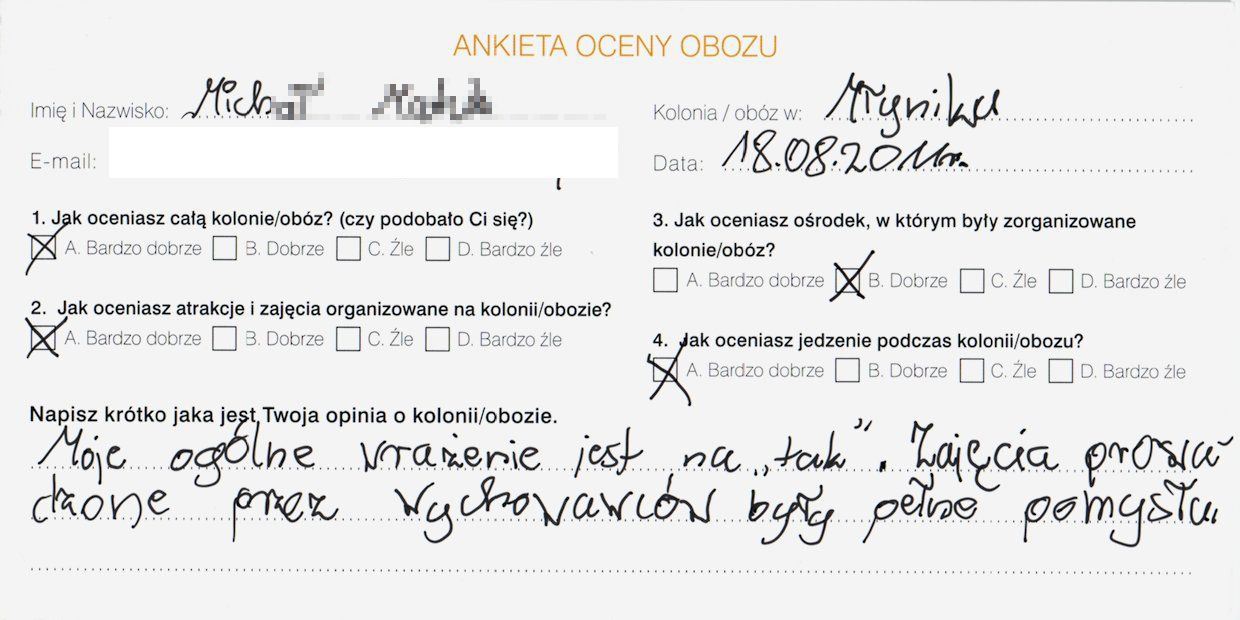 ANKIETA OCENY OBOZU
Imię i Nazwisko: Michał
Kolonia / obóz w: Młyniku
E-mail:
Data: 18.08.2011r.
1. Jak oceniasz całą kolonie/obóz? (czy podobało Ci się?)
A. Bardzo dobrze B. Dobrze C. Źle D. Bardzo źle
2. Jak oceniasz atrakcje i zajęcia organizowane na kolonii/obozie?
A. Bardzo dobrze B. Dobrze C. Źle D. Bardzo źle
3. Jak oceniasz ośrodek, w którym były zorganizowane
kolonie/obóz?
A. Bardzo dobrze B. Dobrze C. Źle D. Bardzo źle
4. Jak oceniasz jedzenie podczas kolonii/obozu?
A. Bardzo dobrze B. Dobrze C. Źle D. Bardzo źle
Napisz krótko jaka jest Twoja opinia o kolonii/obozie.
Moje ogólne wrażenie jest na „tak”. Zajęcia prowa-
dzone przez wychowawców były pełne pomysłu.